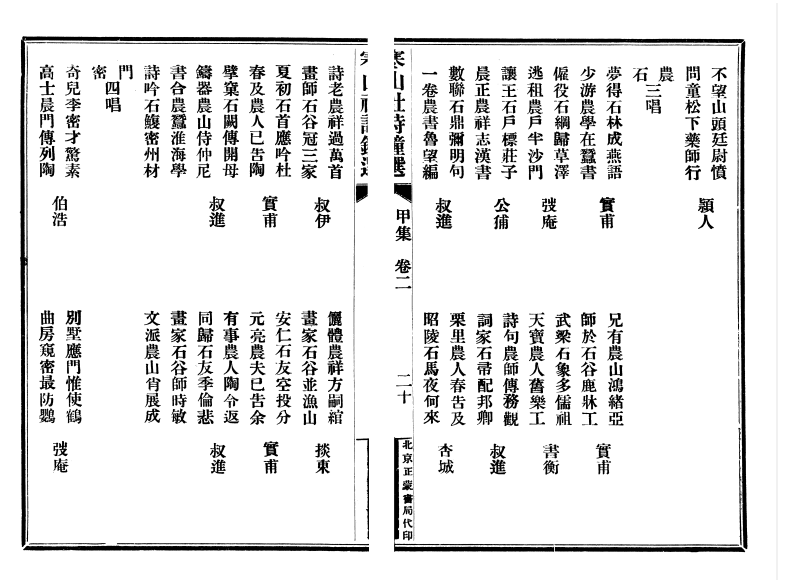 不望山頭廷尉憤
問童松下藥師行
潁人
農
石
三唱
夢得石林成燕語
少游農學在蠶書
實甫
兄有農山鴻緒亞
師於石谷鹿牀工
實甫
傭役石綱歸草澤
逃租農戶半沙門
弢庵
武梁石象多儒祖
天寶農人舊樂工
書衡
讓王石戶標莊子
晨正農祥志漢書
公俌
詩句農師傳務觀
詞家石帚配邦卿
叔進
數聯石鼎彌明句
一卷農書魯望編
叔進
栗里農人春告及
昭陵石馬夜何來
杏城
寒山社詩鐘選
甲集 卷二
二十
北京正蒙書局代印
詩老農祥過萬首
畫師石谷冠三家
叔伊
儷體農祥方嗣綰
畫家石谷並漁山
掞東
夏初石首應吟杜
春及農人已告陶
實甫
安仁石友空投分
元亮農夫已告余
實甫
擘窠石闕傳開母
鑄器農山侍仲尼
叔進
有事農人陶令返
同歸石友季倫悲
叔進
書合農蠶淮海學
詩吟石鰒密州材
畫家石谷師時敏
文派農山肖展成
門
密
四唱
奇兒李密才驚素
高士晨門傳列陶
伯浩
別墅應門惟使鶴
曲房窺密最防鸚
弢庵